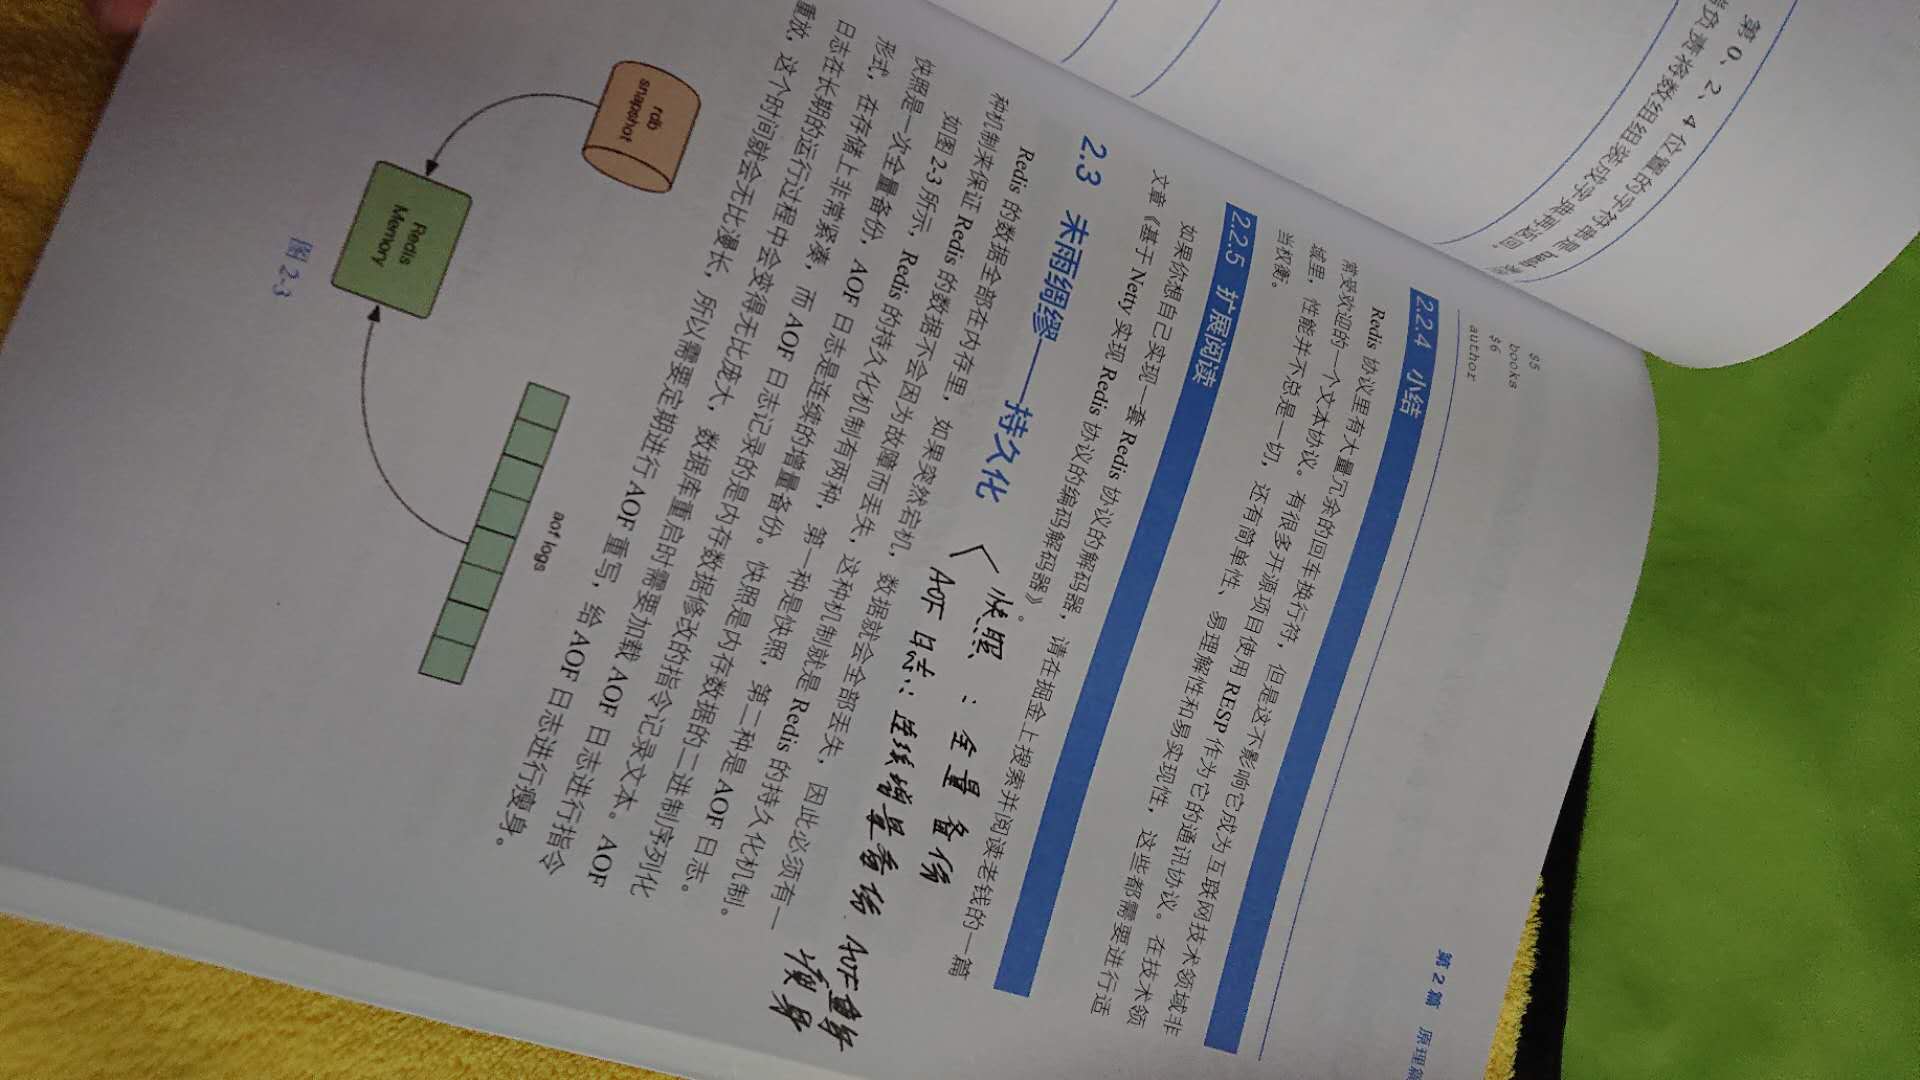 第 0、2、4 位置的字符串是 hash
负责将数组组装成字典再返回。
第 2 篇 原理篇
$5
books
$6
author
2.2.4 小结
Redis 协议里有大量冗余的回车换行符，但是这不影响它成为互联网技术领域非
常受欢迎的一个文本协议。有很多开源项目使用 RESP 作为它的通讯协议。在技术领
域里，性能并不总是一切，还有简单性、易理解性和易实现性，这些都需要进行适
当权衡。
2.2.5 扩展阅读
如果你想自己实现一套 Redis 协议的解码器，请在掘金上搜索并阅读老钱的一篇
文章《基于 Netty 实现 Redis 协议的编码解码器》。
2.3 未雨绸缪——持久化
快照：全量备份
AOF 日志：连续增量备份 AOF重写
瘦身
Redis 的数据全部在内存里，如果突然宕机，数据就会全部丢失，因此必须有一
种机制来保证 Redis 的数据不会因为故障而丢失，这种机制就是 Redis 的持久化机制。
如图 2-3 所示，Redis 的持久化机制有两种，第一种是快照，第二种是 AOF 日志。
快照是一次全量备份，AOF 日志是连续的增量备份。快照是内存数据的二进制序列化
形式，在存储上非常紧凑，而 AOF 日志记录的是内存数据修改的指令记录文本。AOF
日志在长期的运行过程中会变得无比庞大，数据库重启时需要加载 AOF 日志进行指令
重放，这个时间就会无比漫长，所以需要定期进行 AOF 重写，给 AOF 日志进行瘦身。
rdb
snapshot
aof logs
Redis
Memory
图 2-3